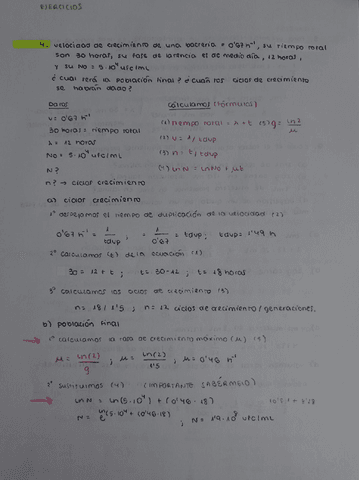 EJERCICIOS
4. velocidad de crecimiento de una bacteria = 0'67 h⁻¹, su tiempo total
son 30 horas, su fase de latencia es de medio día, 12 horas,
y su No = 5·10⁴ ufc/mL
¿cuál será la población final? ¿cuántos ciclos de crecimiento
se habrán dado?
Datos
v = 0'67 h⁻¹
30 horas = tiempo total
λ = 12 horas
No = 5·10⁴ ufc/mL
N?
n? → ciclos crecimiento
Calculamos (Fórmulas)
(1) tiempo total = λ + t (5) g = ln2/μ
(2) v = 1/tdup
(3) n = t/tdup
(4) ln N = ln No + μt
a) ciclos crecimiento
1º despejamos el tiempo de duplicación de la velocidad (2)
0'67 h⁻¹ = 1/tdup ; = 1/0'67 = tdup; tdup = 1'49 h
2º calculamos (t) de la ecuación (1)
30 = 12 + t ; t = 30 - 12 ; t = 18 horas
3º calculamos los ciclos de crecimiento (3)
n = 18/1'5 ; n = 12 ciclos de crecimiento/generaciones.
b) población final
1º calculamos la tasa de crecimiento máximo (μ) (5)
μ = ln(2)/g ; μ = ln(2)/1'5 ; μ = 0'46 h⁻¹
2º sustituimos (4) (IMPORTANTE SABÉRMELO)
ln N = ln(5·10⁴) + (0'46·18)
N = e^ln(5·10⁴)+(0'46·18) ; N = 1'9·10⁸ ufc/mL